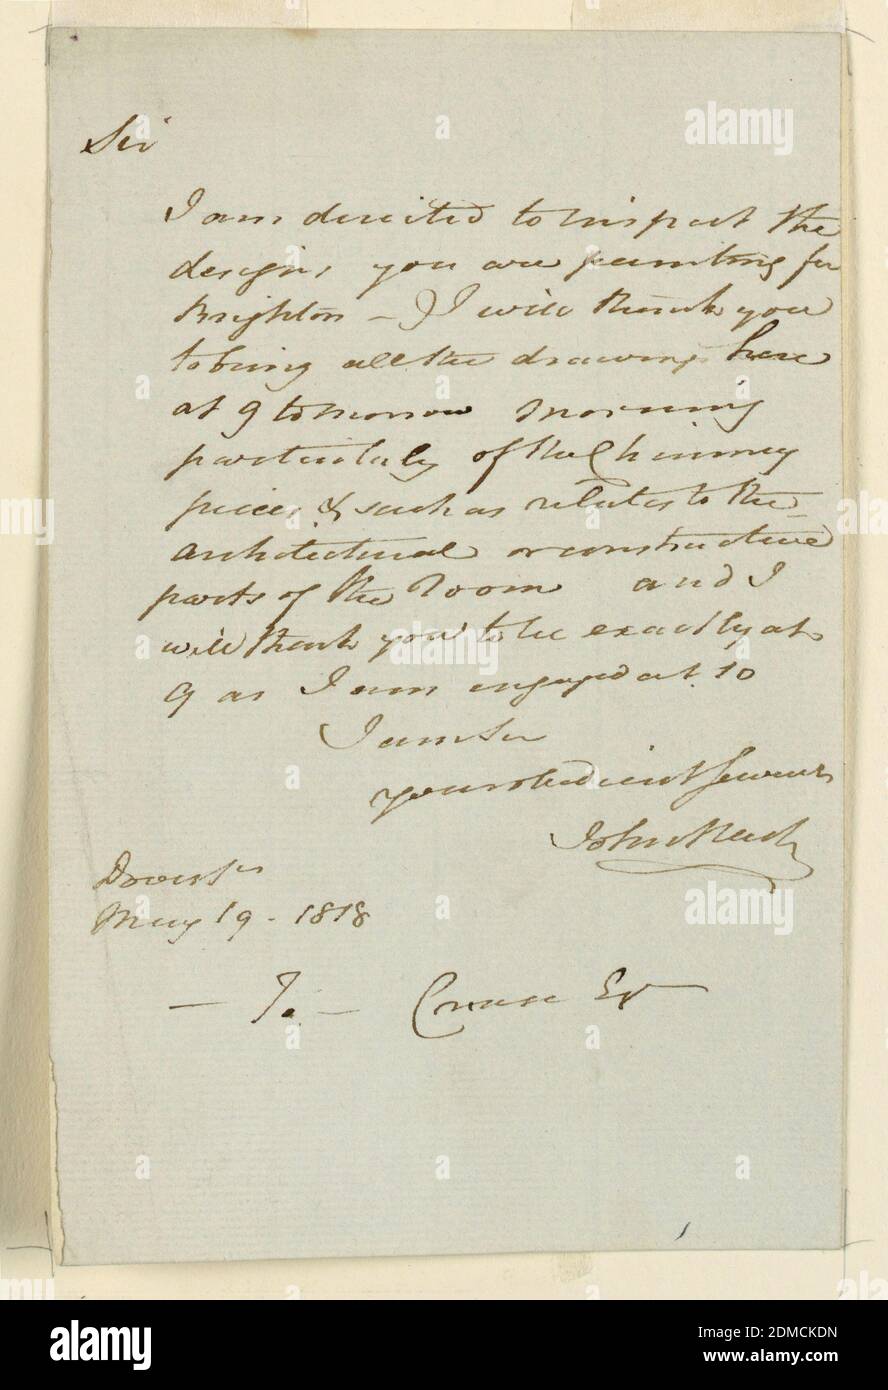 Sir
I am directed to inspect the
designs you are painting for
Brighton – & I will thank you
to bring all the drawings here
at 9 tomorrow morning
particularly of the Chimney
pieces & such as relates to the
architectural or constructive
parts of the Room and I
will thank you to be exactly at
9 as I am engaged at 10
I am Sir
your obedient Servant
John Nash
Dover St
May 19 - 1818
— To — Crace Esq
a alamy
alamy
Image ID: 2DMCKDN
www.alamy.com